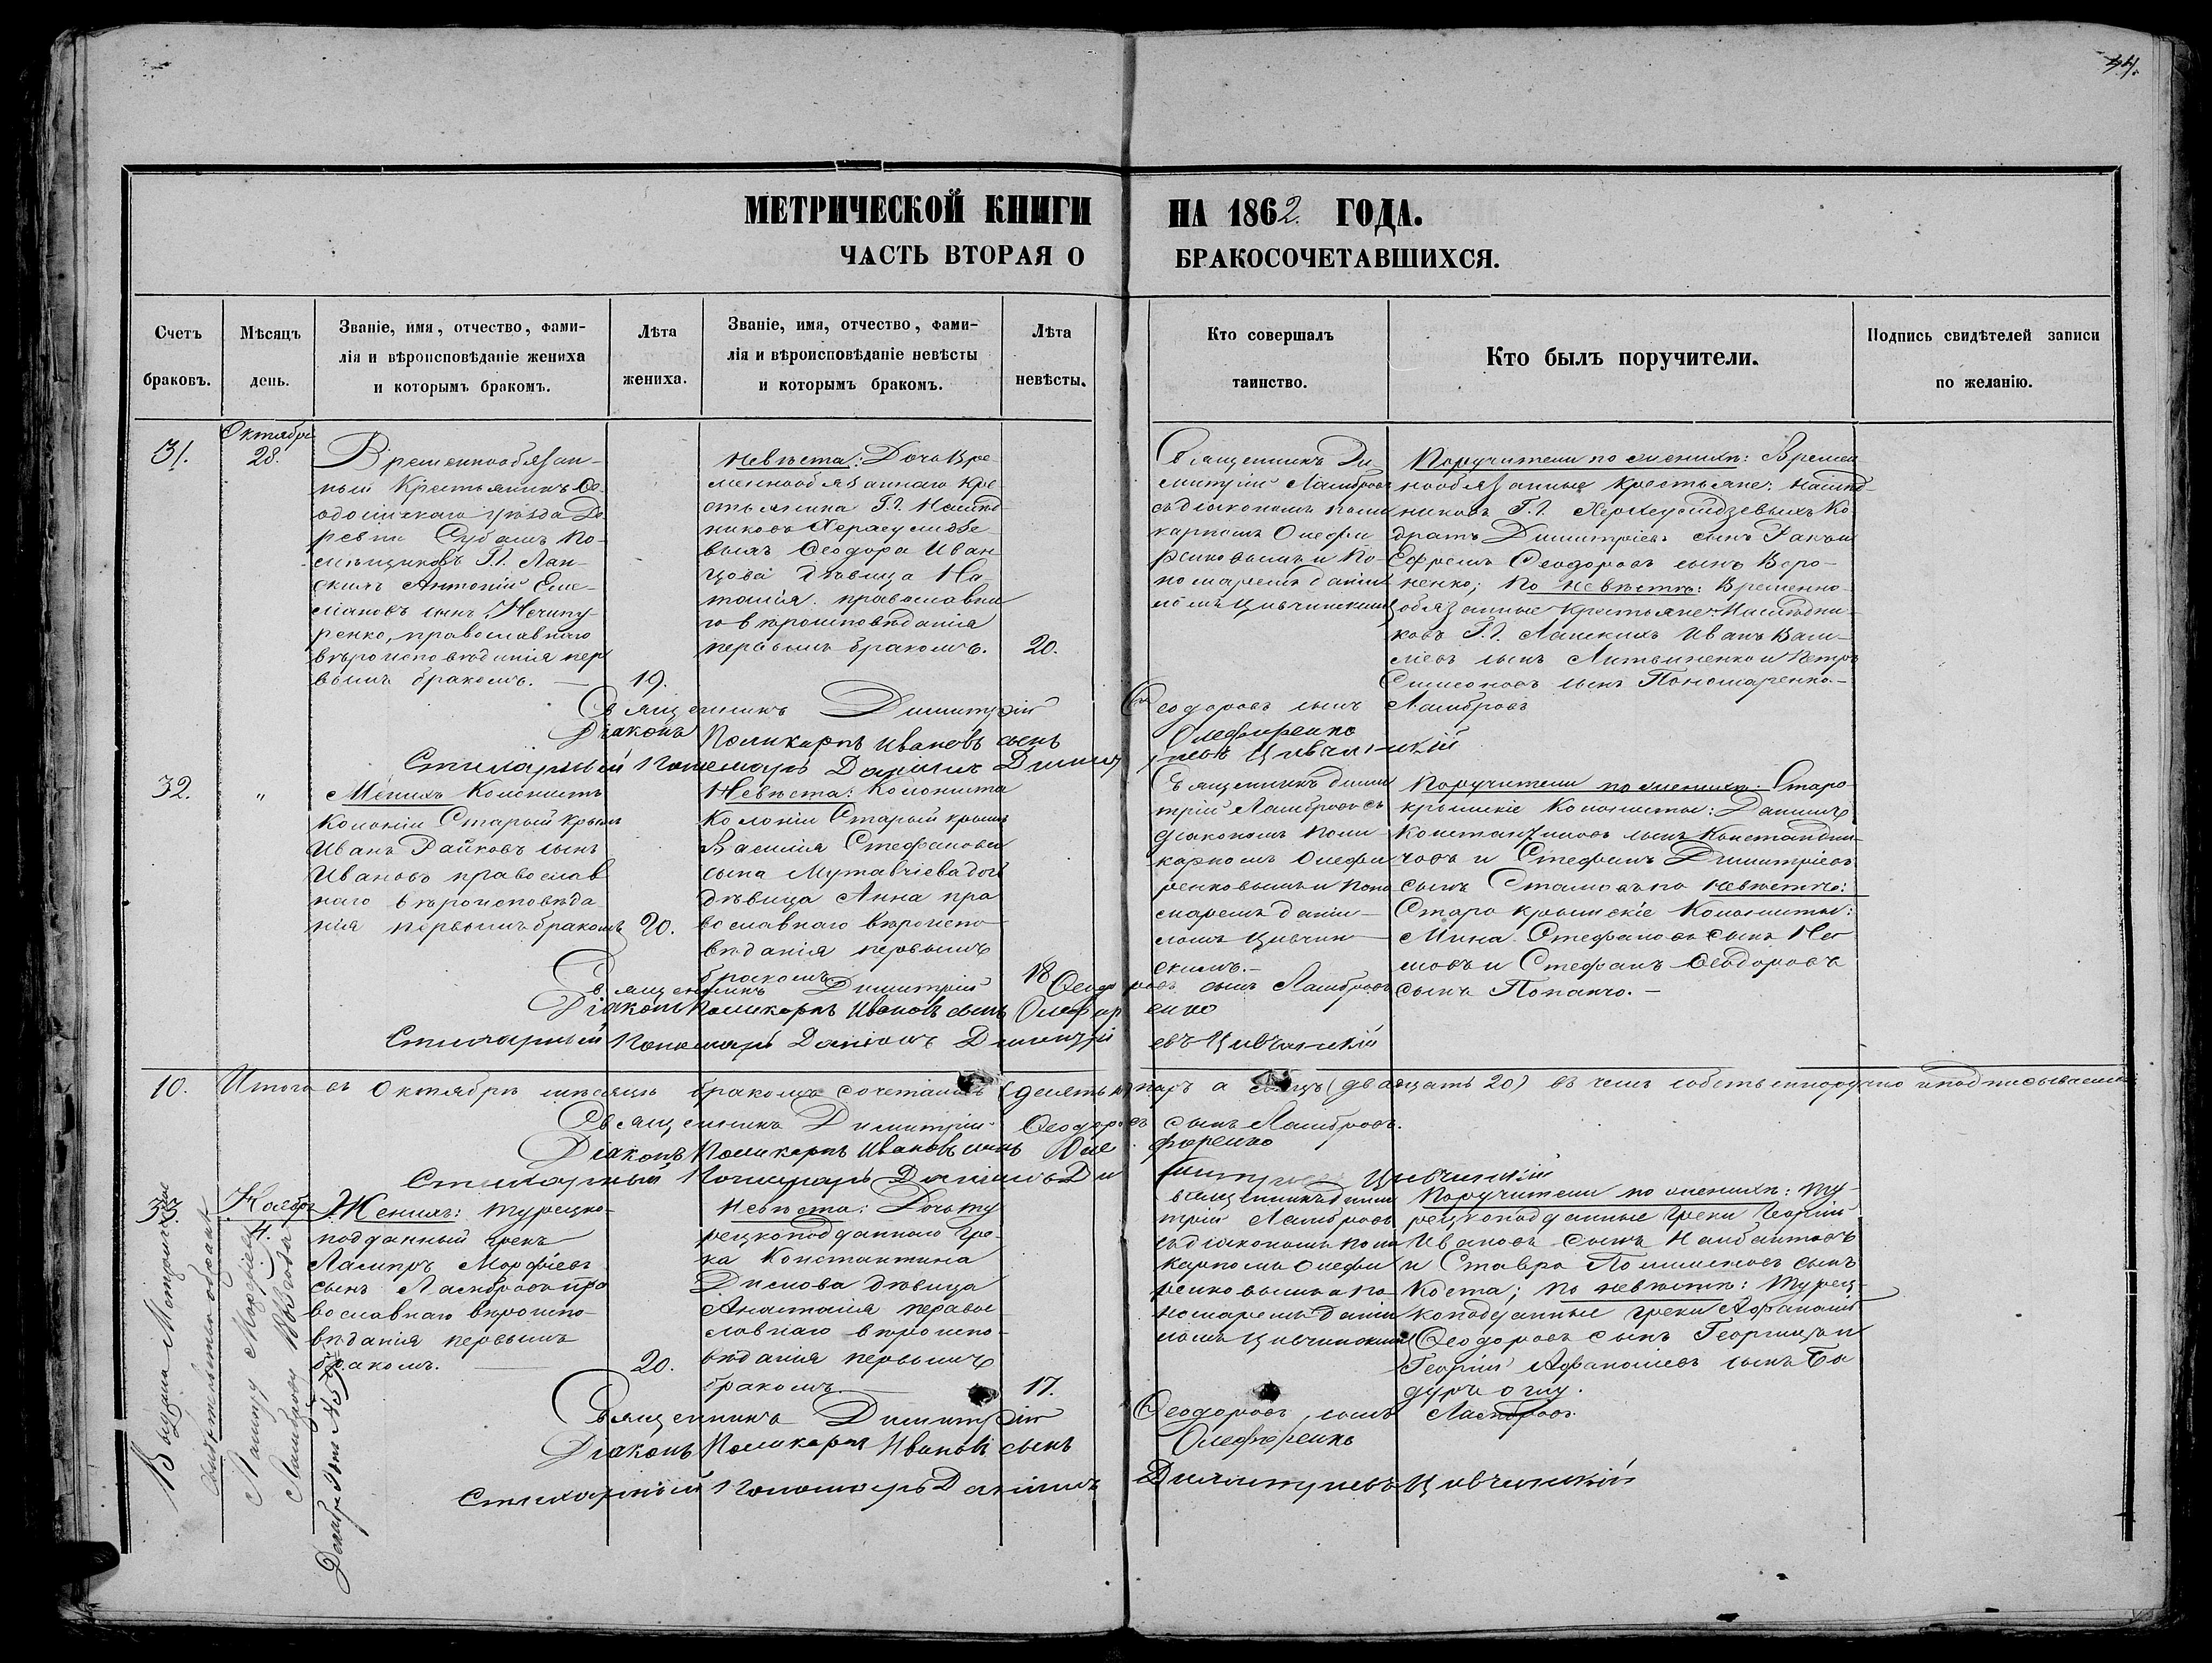 44.
МЕТРИЧЕСКОЙ КНИГИ НА 1862. ГОДА.
ЧАСТЬ ВТОРАЯ О БРАКОСОЧЕТАВШИХСЯ.
Счетъ
браковъ.
Мѣсяцъ
день.
Званіе, имя, отчество, фами-
лія и вѣроисповѣданіе жениха
и которымъ бракомъ.
Лѣта
жениха.
Званіе, имя, отчество, фами-
лія и вѣроисповѣданіе невѣсты
и которымъ бракомъ.
Лѣта
невѣсты.
Кто совершалъ
таинство.
Кто былъ поручители.
Подпись свидѣтелей записи
по желанію.
31.
Октября
28.
Временнообязан-
ный Крестьянинъ Ѳе-
одосійскаго уѣзда Де-
ревни Субашъ По-
мѣщиковъ Г.г. Лан-
скихъ Антоній Еме-
ліановъ сынъ Нечипу-
ренко, православнаго
вѣроисповѣданія пер
вымъ бракомъ. —
19.
Невѣста: Дочь Вре-
меннообязаннаго Кре
стьянина Г.г. Наслѣд-
никовъ
выхъ Ѳеодора Иван
цова дѣвица На
талія православна
го вѣроисповѣданія
первымъ бракомъ.
20.
Священникъ Ди-
митрій Ламбровъ
съ діакономъ Поли
карпомъ Олефи
ренковымъ и По-
номаремъ Даніи
ломъ Цивчинскимъ
Поручители по женихѣ: Времен
нообязанные крестьяне: Наслѣд-
никовъ Г.г. Ко
дратъ Димитріевъ сынъ
Ефремъ Ѳеодоровъ сынъ Воро-
ненко; по невѣстѣ: Временно-
обязанные крестьяне Наслѣдни-
ковъ Г.г. Ланскихъ Иванъ Васи-
ліевъ сынъ Литвиненко и Петръ
Симеоновъ сынъ Пономаренко.—
Священникъ Димитрій Ѳеодоровъ сынъ Ламбровъ
Діаконъ Поликарпъ Ивановъ сынъ Олефиренко
Стихарный Пономарь Даніилъ Димитріевъ Цивчинскій
32.
„
Женихъ Колонистъ
Колоніи Старый Крымъ
Иванъ Райковъ сынъ
Ивановъ православ
наго вѣроисповѣда-
нія первымъ бракомъ
20.
Невѣста: Колониста
Колоніи Старый крымъ
Василія Стефанова
сына Мутавчіева дочь
дѣвица Анна пра
вославнаго вѣроиспо-
вѣданія первымъ
бракомъ
18
Священникъ Дими
трій Ламбровъ съ
діакономъ Поли-
карпомъ Олефи
ренковымъ и Поно
маремъ Даніи-
ломъ Цивчин-
скимъ.—
Поручители по женихѣ: Старо-
крымскіе Колонисты: Даніилъ
Константиновъ сынъ Константи-
новъ и Стефанъ Димитріевъ
сынъ Стамовъ по невѣстѣ:
Старокрымскіе Колонисты:
Мина Стефановъ сынъ
и Стефанъ Ѳеодоровъ
сынъ Папанчо.—
Священникъ Димитрій Ѳеодоровъ сынъ Ламбровъ
Діаконъ Поликарпъ Ивановъ сынъ Олефиренко
Стихарный Пономарь Даніилъ Димитріевъ Цивчинскій
10. Итого въ Октябрѣ мѣсяцѣ бракомъ сочетались (десять 10) паръ а лицъ (двадцать 20) въ чемъ собственноручно и подписываемся:
Священникъ Димитрій Ѳеодоровъ сынъ Ламбровъ.
Діаконъ Поликарпъ Ивановъ сынъ Олефиренко
Стихарный Пономарь Даніилъ Димитріевъ Цивчинскій
33.
Ноябрь
4.
Женихъ: Турецко-
подданный грекъ
Ламиръ Морфіевъ
сынъ Ламбровъ пра
вославнаго вѣроиспо-
вѣданія первымъ
бракомъ. —
20.
Невѣста: Дочь ту
рецкоподданнаго Гре-
ка Константина
Димова дѣвица
Анастасія правос
лавнаго вѣроиспо-
вѣданія первымъ
бракомъ. —
17.
Священникъ Дими
трій Ламбровъ
съ діакономъ Поли
карпомъ Олефи
ренковымъ и По-
номаремъ Даніи
ломъ Цивчинскимъ
Поручители по женихѣ: Ту-
рецкоподданные греки Георгій
Ивановъ сынъ Налбантовъ
и Ставро сынъ
Коста; по невѣстѣ: Турец-
коподданные греки Аѳанасій
Ѳеодоровъ сынъ и
Георгій Аѳанасіевъ сынъ Ба
дуръ оглу.
Священникъ Димитрій Ѳеодоровъ сынъ Ламбровъ
Діаконъ Поликарпъ Ивановъ сынъ Олефиренко
Стихарный Пономарь Даніилъ Димитріевъ Цивчинскій
Выдана Метрическое
Свидѣтельство
Ламиру Морфіеву
Ламброву 1882 года
Декабря